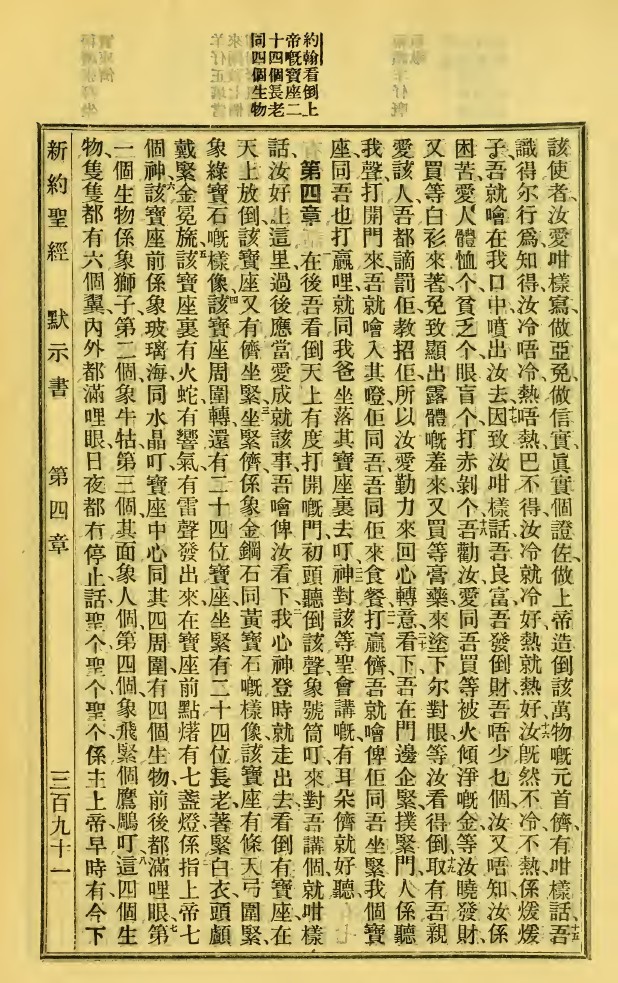 約翰看倒上
帝嘅寶座二
十四個長老
同四個生物
該使者汝愛咁樣寫做亞兔做信實眞實個證佐做上帝造倒該萬物嘅元首儕有咁樣話吾十五
識得尔行爲知得汝冷唔冷熱唔熱巴不得汝冷就冷好熱就熱好十六汝旣然不冷不熱係煖煖
子吾就噲在我口中噴出汝去十七因致汝咁樣話吾良富吾發倒財吾唔少乜個汝又唔知汝係
困苦愛人體恤个貧乏个眼盲个打赤剝个十八吾勸汝愛同吾買等被火傾淨嘅金等汝曉發財
又買等白衫來著免致顯出露體嘅羞來又買等膏藥來塗下尔對眼等汝看得倒十九取有吾親
愛該人吾都謫罰佢教招佢所以汝愛勤力來回心轉意二十看下吾在門邊企緊撲緊門人係聽
我聲打開門來吾就噲入其噔佢同吾吾同佢來食餐二一打贏儕吾就噲俾佢同吾坐緊我個寶
座同吾也打贏哩就同我爸坐落其寶座裏去二二叮神對該等聖會講嘅有耳朵儕就好聽
第四章 一在後吾看倒天上有度打開嘅門初頭聽倒該聲象號筒叮來對吾講個就咁樣
話汝好上這里過後應當愛成就該事吾噲俾汝看下二我心神登時就走出去看倒有寶座在
天上放倒該寶座又有儕坐緊三坐緊儕係象金鋼石同黃寶石嘅樣像該寶座有條天弓圍緊
象綠寶石嘅樣像四該寶座周圍轉還有二十四位寶座坐緊有二十四位長老著緊白衣頭顱
戴緊金冕旒五該寶座裏有火蛇有響氣有雷聲發出來在寶座前點㷮有七盞燈係指上帝七
個神六該寶座前係象玻璃海同水晶叮寶座中心同其四周圍有四個生物前後都滿哩眼七第
一個生物係象獅子第二個象牛牯第三個其面象人個第四個象飛緊個鷹鵰叮八這四個生
物隻隻都有六個翼內外都滿哩眼日夜都冇停止話聖个聖个聖个係主上帝早時有今下
新約聖經 默示書 第四章 三百九十一